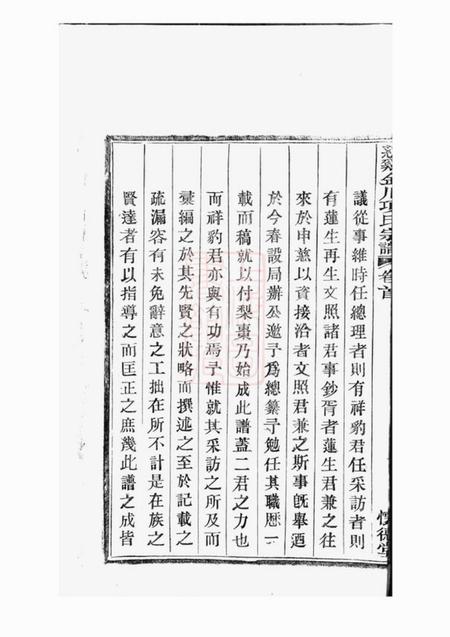 金川項氏宗譜 卷首
議從事維時任總理者則有祥豹君任采訪者則
有蓮生再生文照諸君事鈔胥者蓮生君兼之往
來於申慈以資接洽者文照君兼之斯事旣舉酒
於今春設局辦公邀予爲總纂予勉任其職歷一
載而稿就以付梨棗乃始成此譜蓋二君之力也
而祥豹君亦與有功焉予惟就其采訪之所及而
彙編之於其先賢之狀略而撰述之至於記載之
疏漏容有未免辭意之工拙在所不計是在族之
賢達者有以指導之而匡正之庶幾此譜之成皆